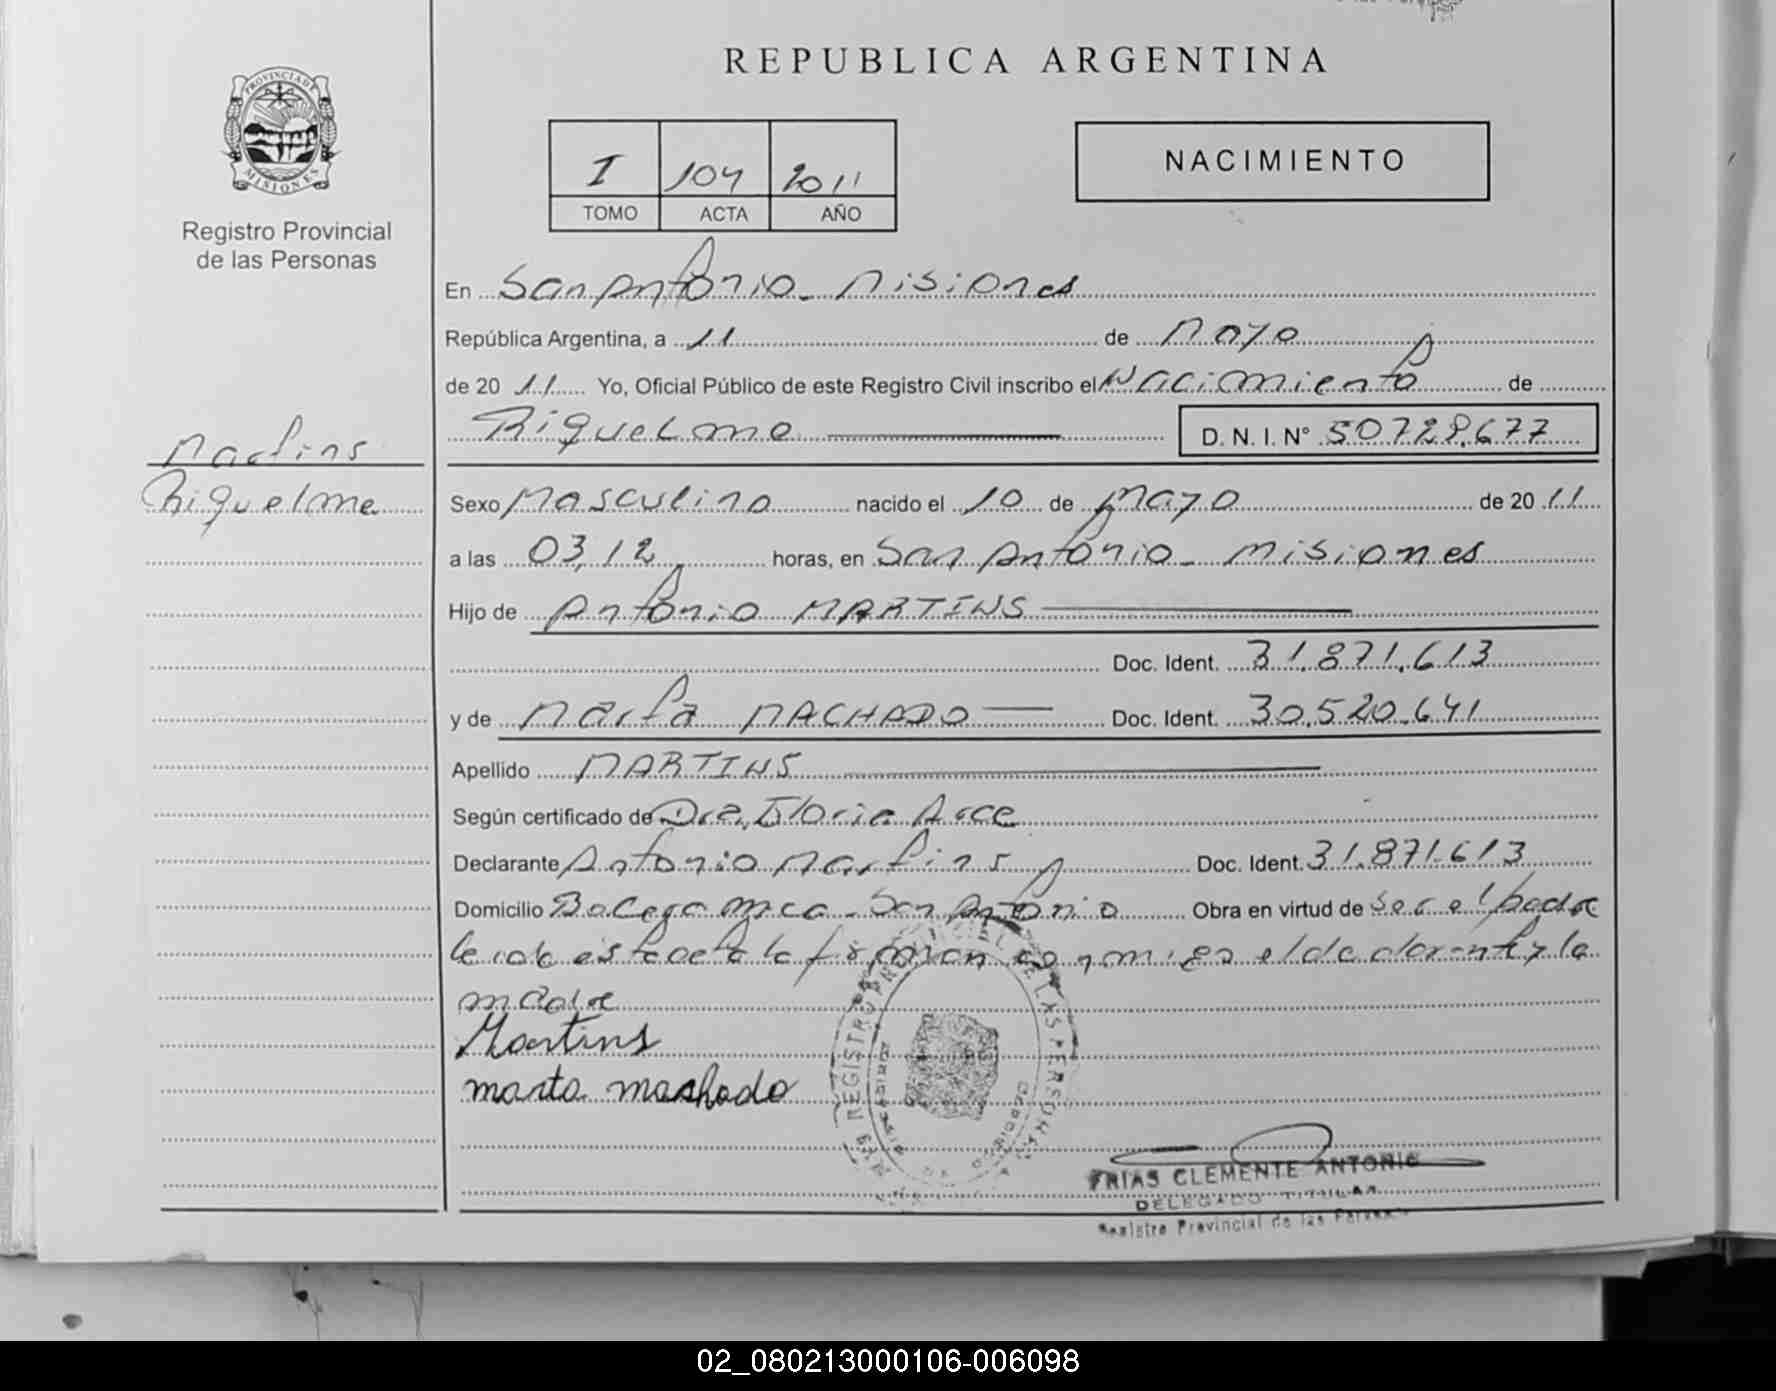 REPUBLICA ARGENTINA
PROVINCIA DE
MISIONES
Registro Provincial
de las Personas
I 104 2011
TOMO ACTA AÑO
NACIMIENTO
En San Antonio - Misiones
República Argentina, a 11 de Mayo
de 20 11 Yo, Oficial Público de este Registro Civil inscribo el Nacimiento de
Riquelme D. N. I. N° 50.728.677
Martins
Riquelme
Sexo Masculino nacido el 10 de Mayo de 20 11
a las 03,12 horas, en San Antonio - Misiones
Hijo de Antonio MARTINS
Doc. Ident. 31.871.613
y de Marta MACHADO Doc. Ident. 30.520.641
Apellido MARTINS
Según certificado de Dra. Gloria Arce
Declarante Antonio Martins Doc. Ident. 31.871.613
Domicilio San Antonio Obra en virtud de Ser el padre
leida esta acta la firman conmigo el declarante y la
madre
Martins
marta mashado
REGISTRO PROVINCIAL DE LAS PERSONAS
FRIAS CLEMENTE ANTONIO
DELEGADO TITULAR
Registro Provincial de las Personas
02_080213000106-006098